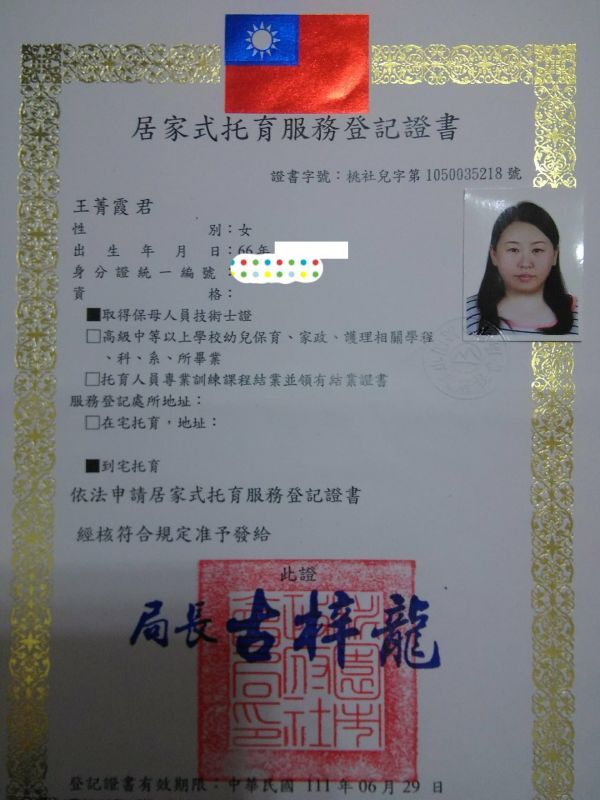 居家式托育服務登記證書
證書字號：桃社兒字第1050035218號
王菁霞 君
性別：女
出生年月日：66年
身分證統一編號：
資格：
■取得保母人員技術士證
□高級中等以上學校幼兒保育、家政、護理相關學程
、科、系、所畢業
□托育人員專業訓練課程結業並領有結業證書
服務登記處所地址：
□在宅托育，地址：
■到宅托育
依法申請居家式托育服務登記證書
經核符合規定准予發給
此證
局長 古梓龍
登記證書有效期限：中華民國 111 年 06 月 29 日